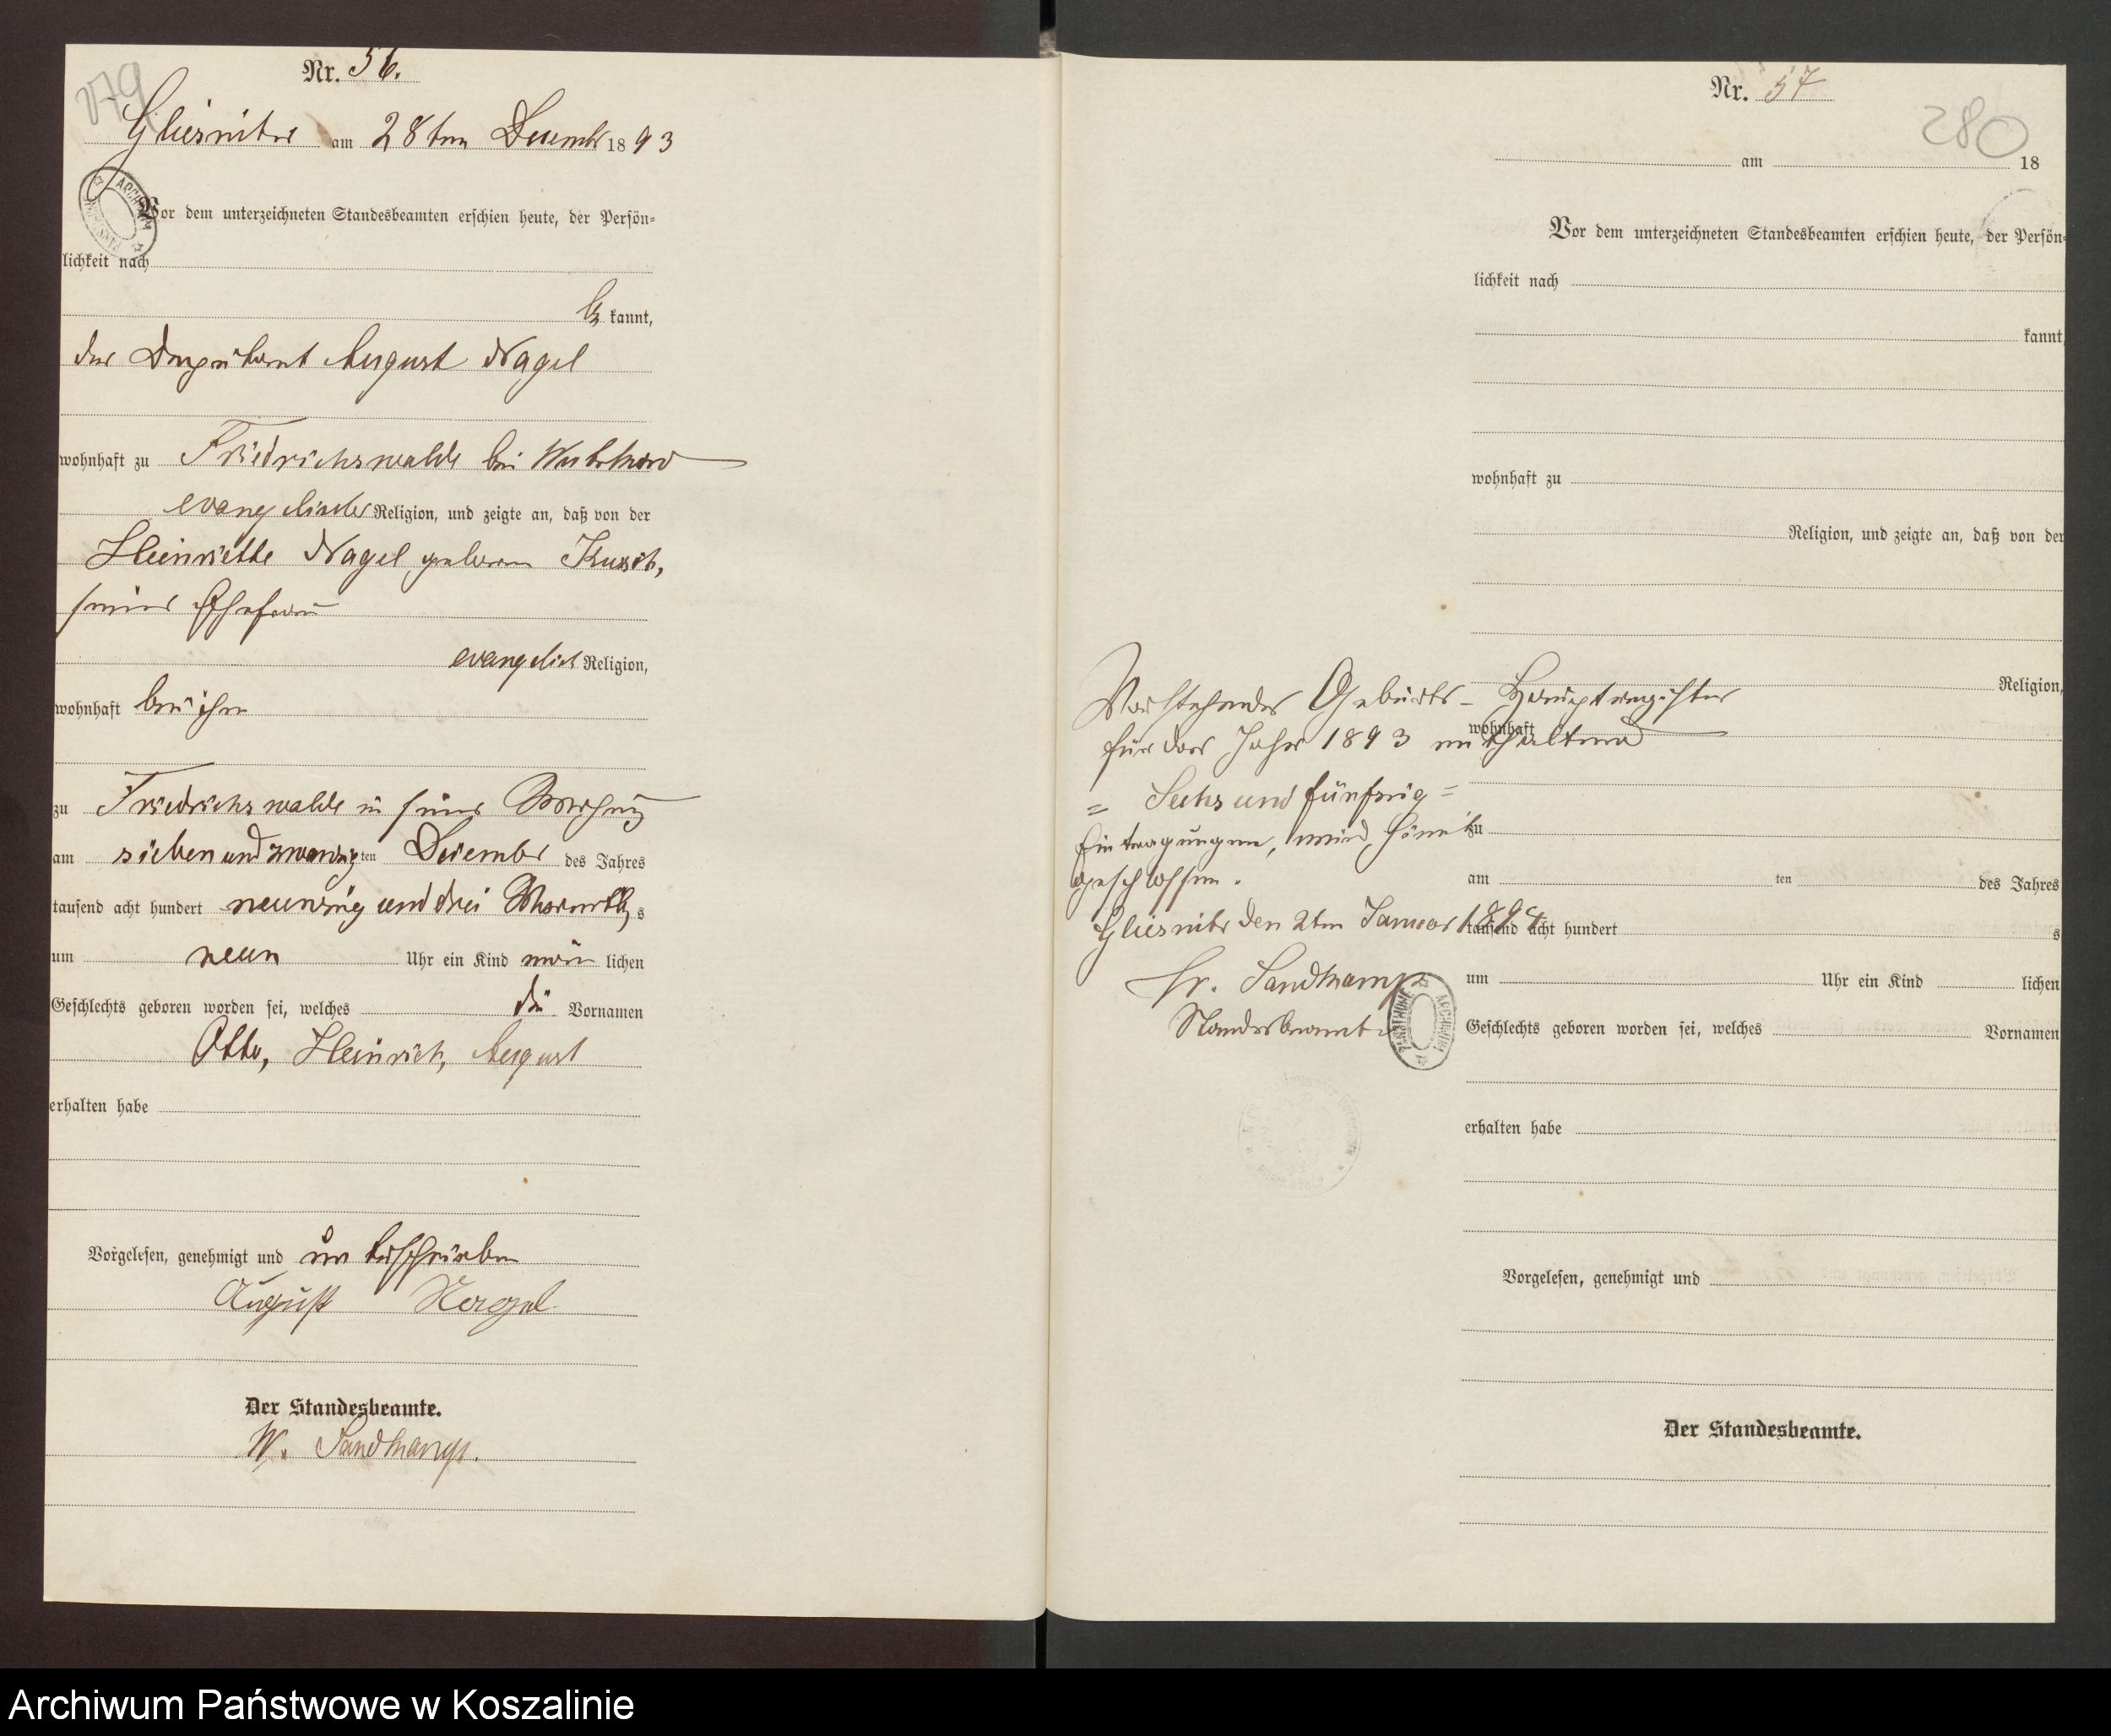 179
Nr. 56.
Gliesnitz am 28ten Decembr 1893
Vor dem unterzeichneten Standesbeamten erschien heute, der Persön=
lichkeit nach
be kannt,
der Deputant August Nagel
wohnhaft zu Friedrichswalde bei Muttrin
evangelischer Religion, und zeigte an, daß von der
Henriette Nagel geborene Kusch,
seiner Ehefrau
evangelisch Religion,
wohnhaft bei ihm
zu Friedrichswalde in seiner Wohnung
am sieben und zwanzig ten Dezember des Jahres
tausend acht hundert neunzig und drei Vormittag s
um neun Uhr ein Kind männ lichen
Geschlechts geboren worden sei, welches die Vornamen
Otto, Heinrich, August
erhalten habe
Vorgelesen, genehmigt und unterschrieben
August Nagel
Der Standesbeamte.
W. Sandkamp.
280
Nr. 57
am 18
Vor dem unterzeichneten Standesbeamten erschien heute, der Persön=
lichkeit nach
kannt,
wohnhaft zu
Religion, und zeigte an, daß von der
Religion,
wohnhaft
zu
am ten des Jahres
tausend acht hundert s
um Uhr ein Kind lichen
Geschlechts geboren worden sei, welches Vornamen
erhalten habe
Vorgelesen, genehmigt und
Der Standesbeamte.
Vorstehendes Geburts-Hauptregister
für das Jahr 1893 enthaltend
= Sechs und fünfzig =
Eintragungen, wird hiermit
geschlossen.
Gliesnitz den 2ten Januar 1894
Sandkamp
Standesbeamte
Archiwum Państwowe w Koszalinie